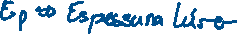 Ep → Espessura Livre